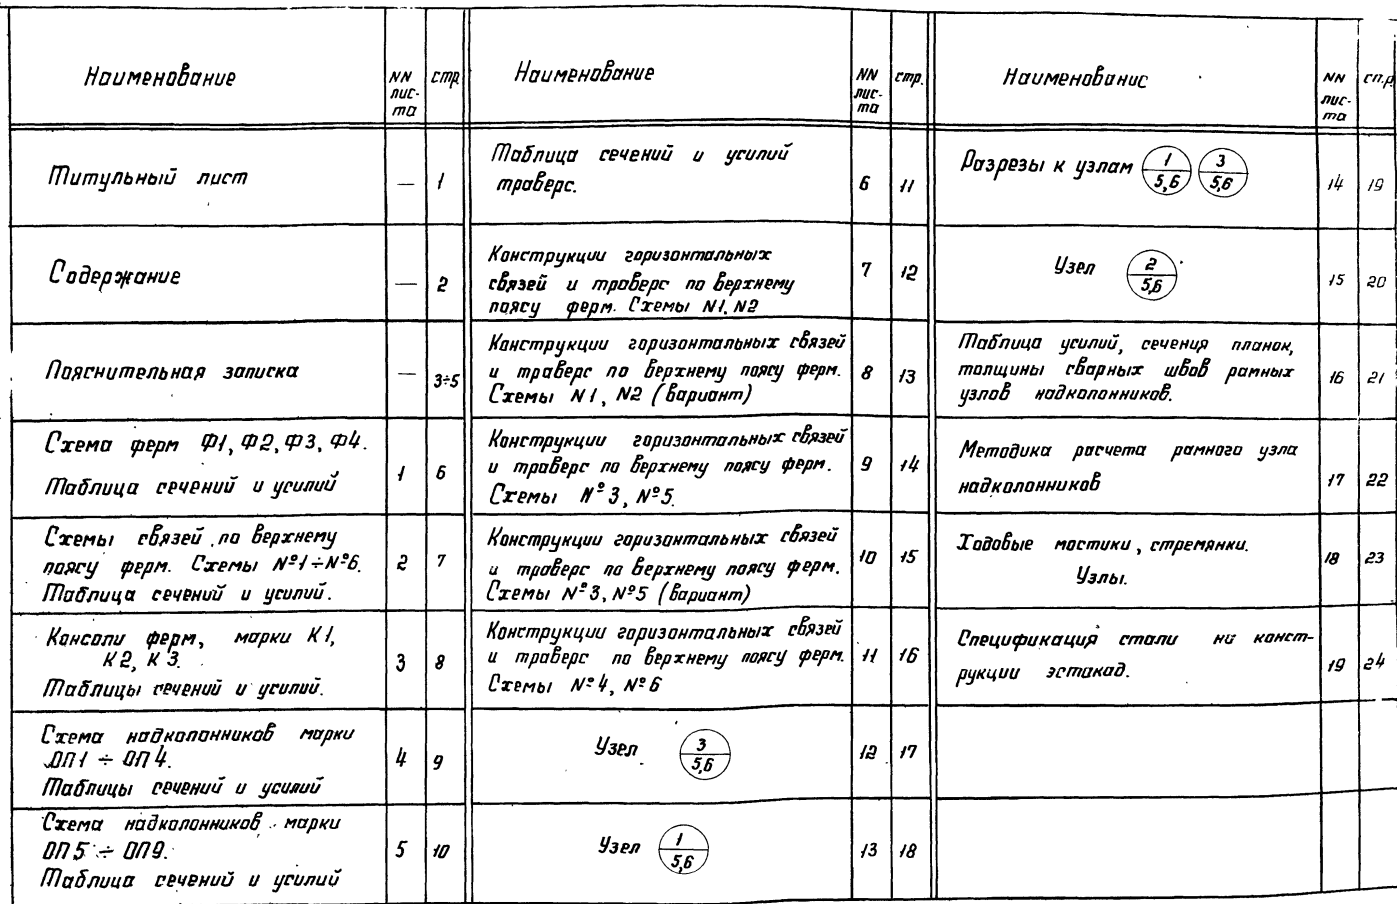 Наименование
NN лис-та
стр.
Титульный лист — 1
Содержание — 2
Пояснительная записка — 3÷5
Схема ферм Ф1, Ф2, Ф3, Ф4.
Таблица сечений и усилий 1 6
Схемы связей по верхнему
поясу ферм. Схемы №1÷№6. 2 7
Таблица сечений и усилий.
Консоли ферм, марки К1,
К2, К3. 3 8
Таблицы сечений и усилий.
Схема надколонников марки
ОП1 ÷ ОП4. 4 9
Таблицы сечений и усилий
Схема надколонников марки
ОП5 ÷ ОП9. 5 10
Таблица сечений и усилий
Наименование
NN лис-та
стр.
Таблица сечений и усилий
траверс. 6 11
Конструкции горизонтальных
связей и траверс по верхнему 7 12
поясу ферм. Схемы N1, N2
Конструкции горизонтальных связей
и траверс по верхнему поясу ферм. 8 13
Схемы N1, N2 (вариант)
Конструкции горизонтальных связей
и траверс по верхнему поясу ферм. 9 14
Схемы №3, №5.
Конструкции горизонтальных связей
и траверс по верхнему поясу ферм. 10 15
Схемы №3, №5 (вариант)
Конструкции горизонтальных связей
и траверс по верхнему поясу ферм. 11 16
Схемы №4, №6
Узел 3/5,6 12 17
Узел 1/5,6 13 18
Наименование
NN лис-та
стр.
Разрезы к узлам 1/5,6 3/5,6 14 19
Узел 2/5,6 15 20
Таблица усилий, сечения планок,
толщины сварных швов рамных 16 21
узлов надколонников.
Методика расчета рамного узла
надколонников 17 22
Ходовые мостики, стремянки. 18 23
Узлы.
Спецификация стали на конст-
рукции эстакад. 19 24